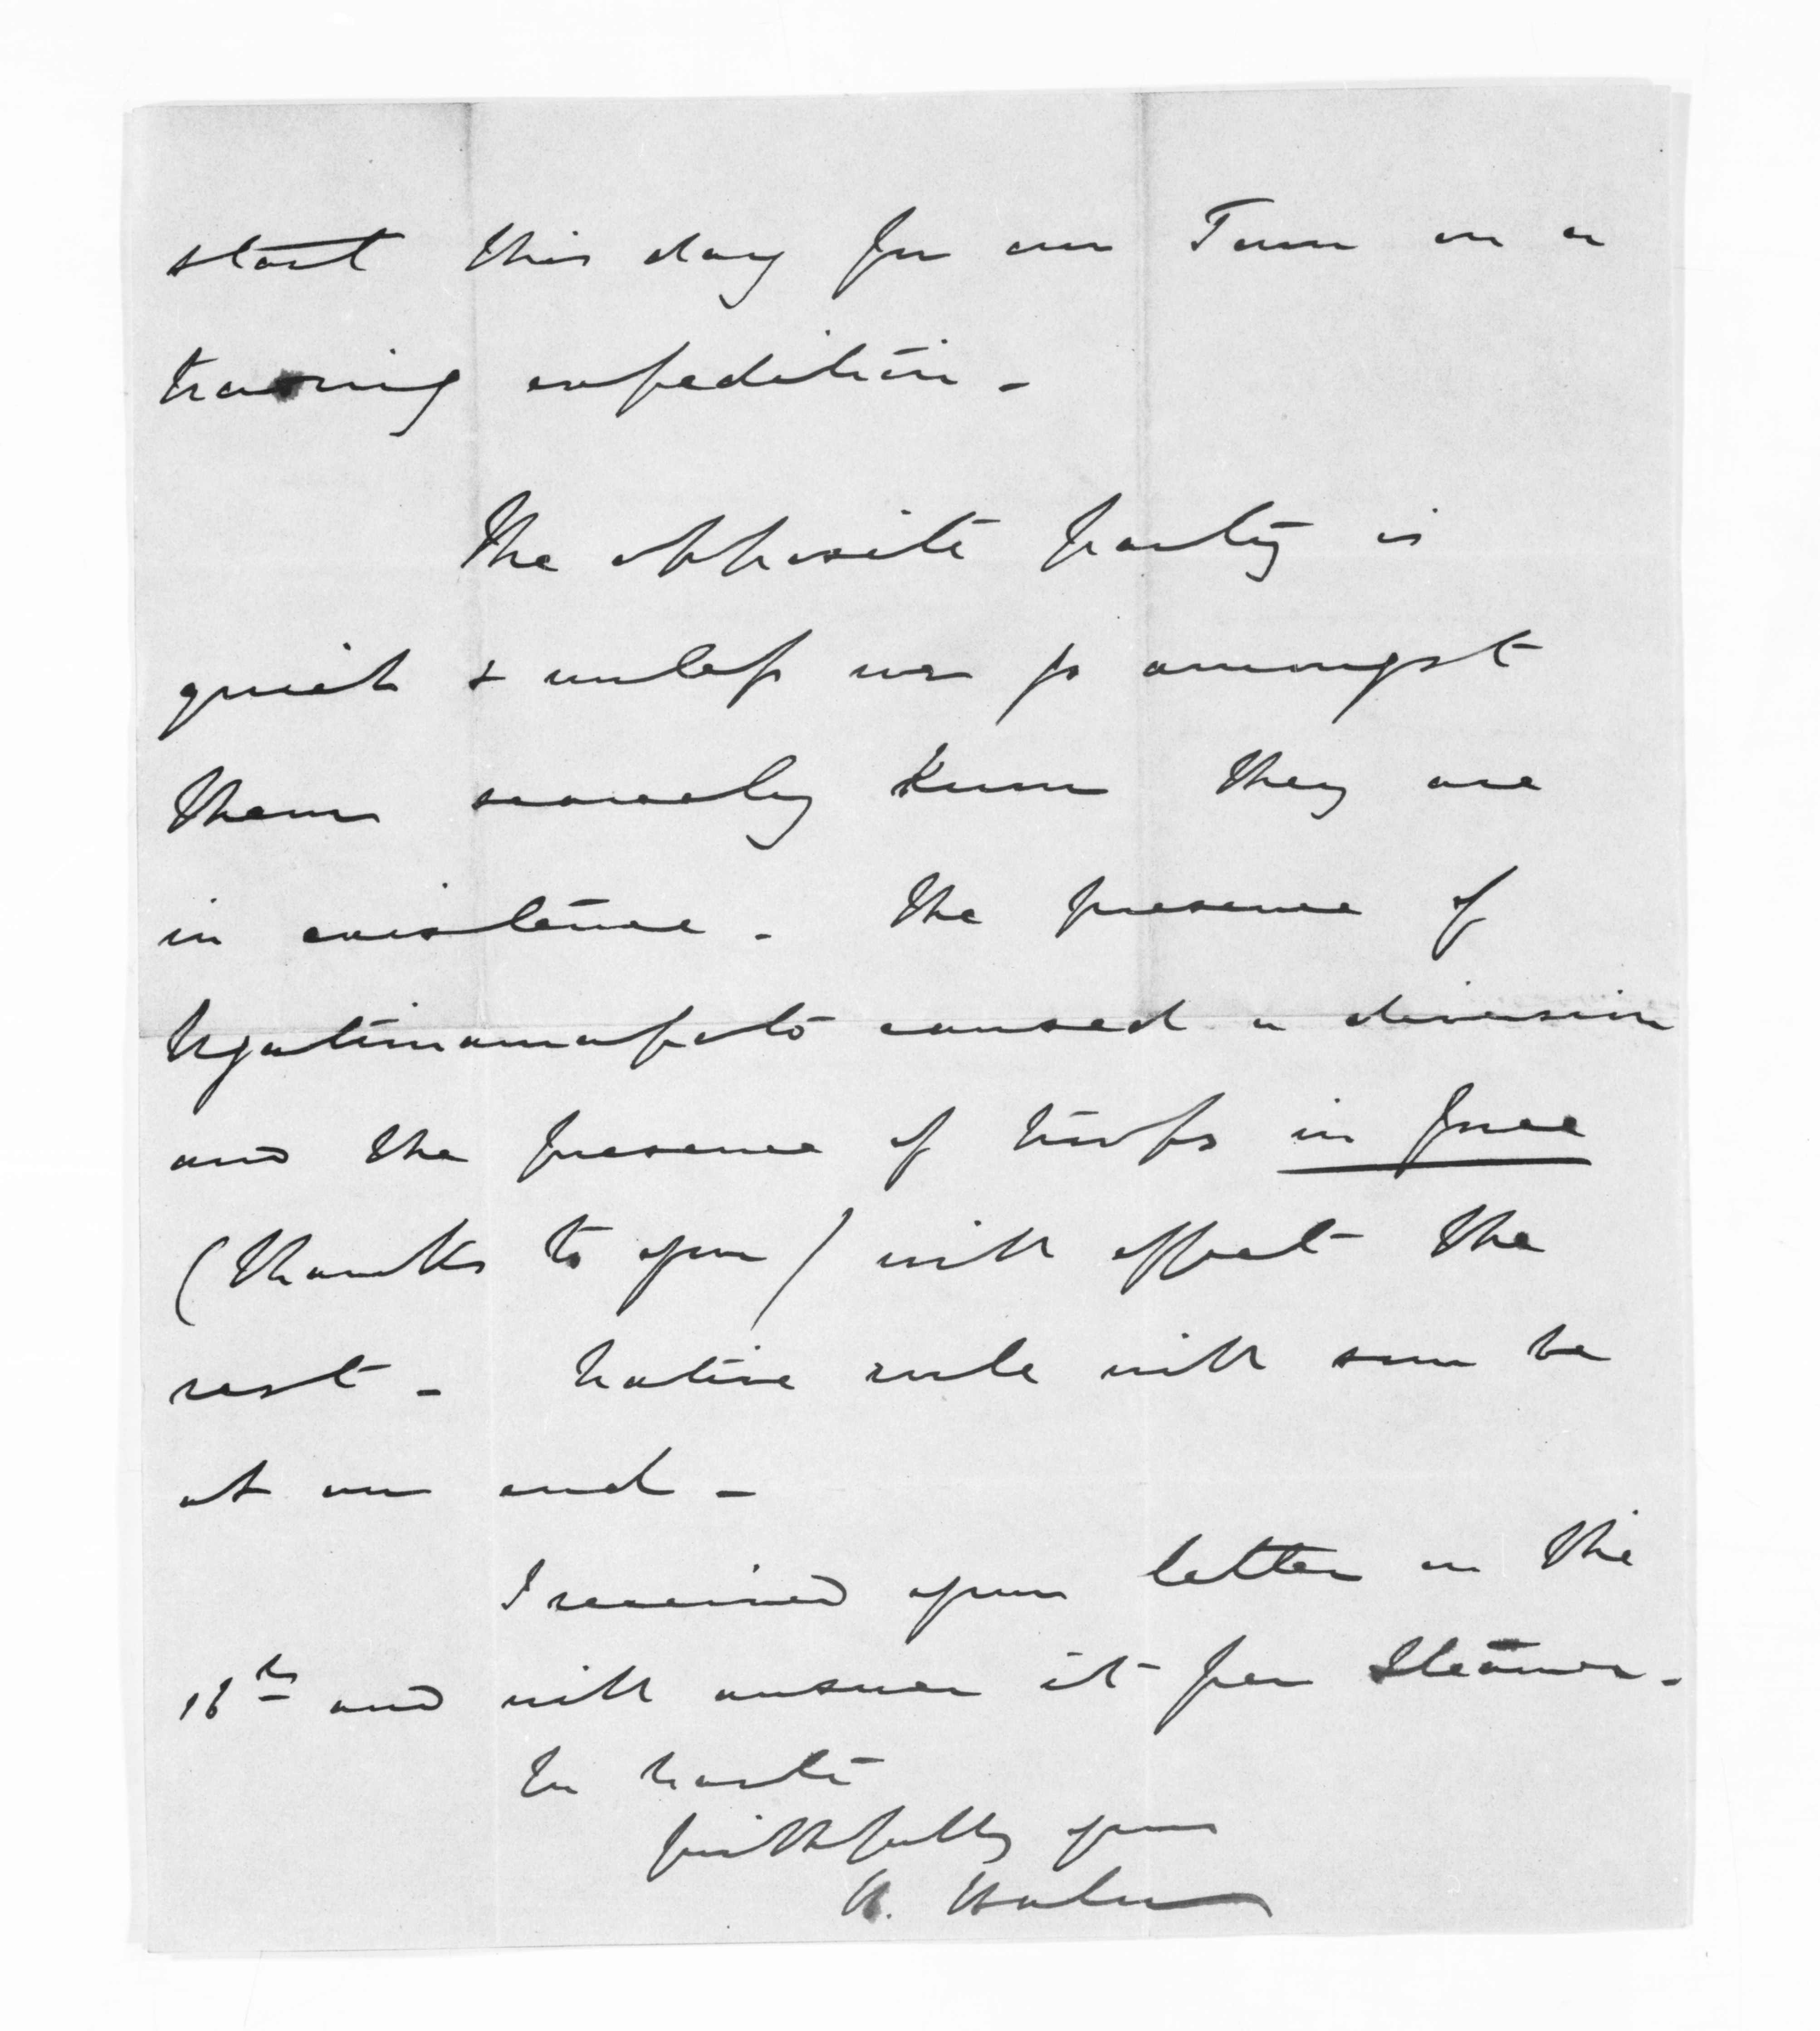 start this day for our Town on a
training expedition -
The opposite party is
quiet & unless we go amongst
them scarcely know they are
in existence - The presence of
Ngatimaniapoto caused a division
and the presence of troops in force
(thanks to you) will effect the
rest - Native rule will soon be
at an end -
I received your letter on the
16th and will answer it per Steamer -
In haste
faithfully yours
H. Halse